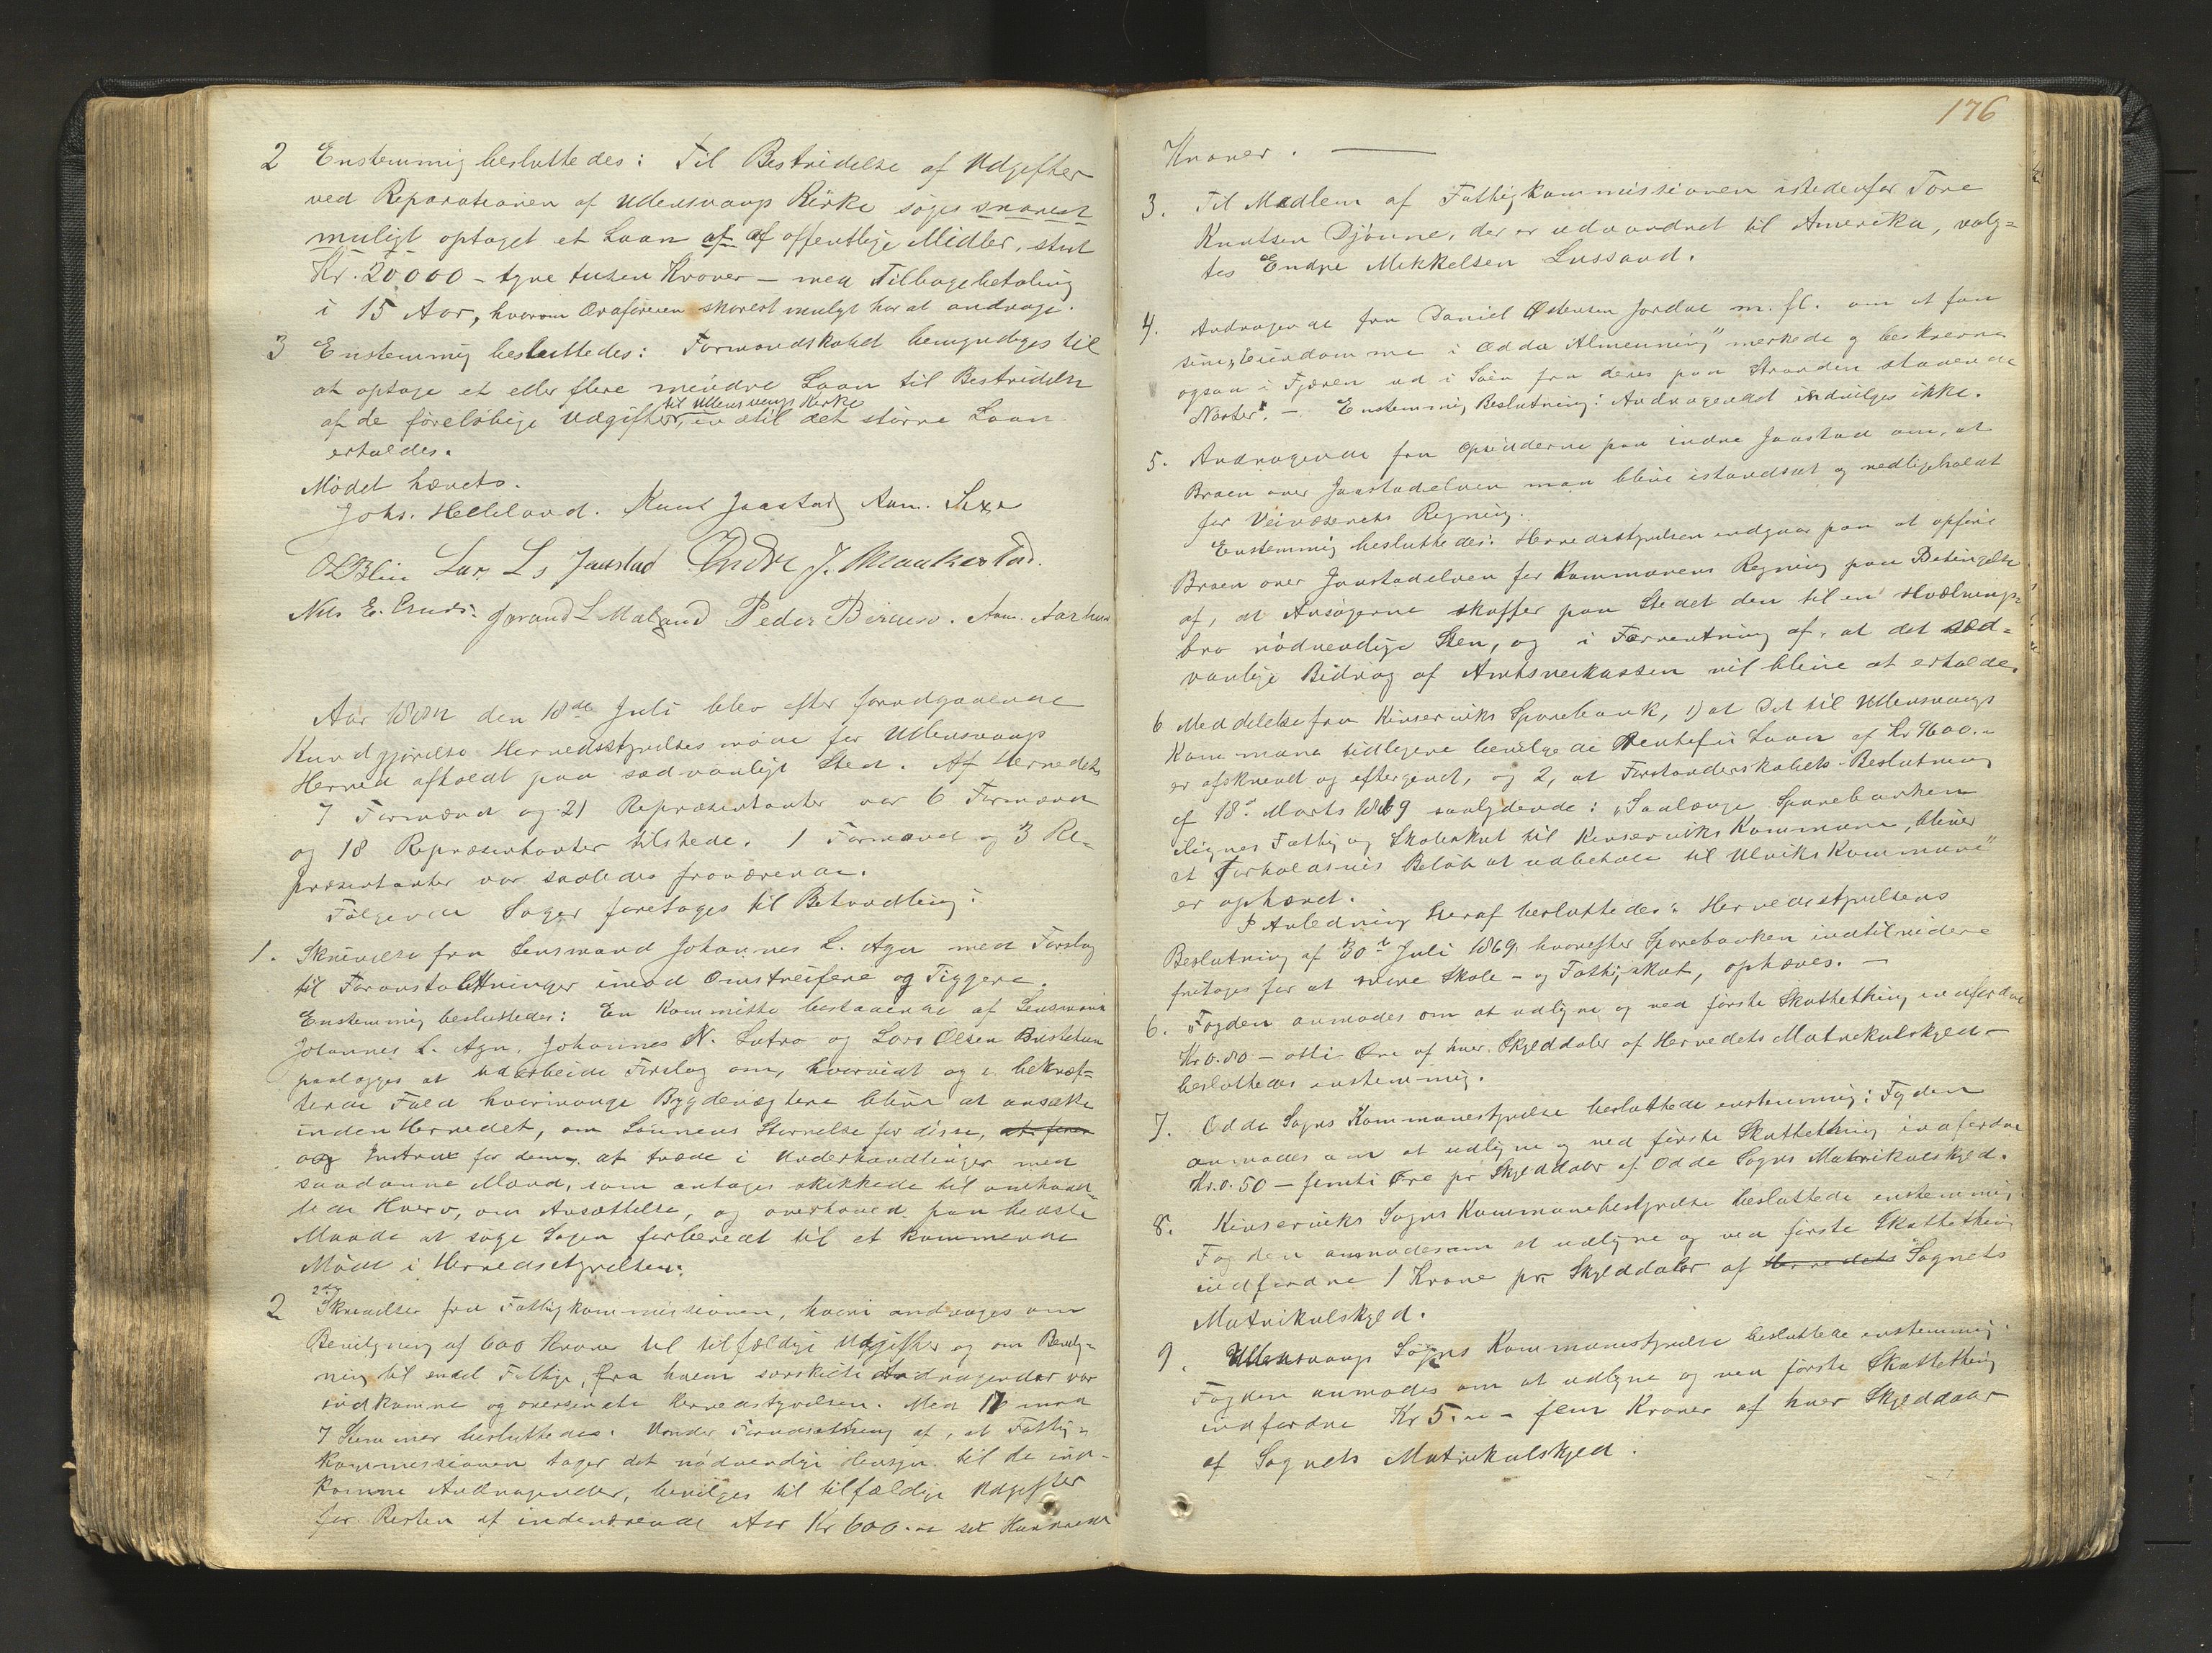 2 Enstemmig besluttedes: Til Bestridelse af Udgifter
ved Reparationen af Ullensvangs Kirke søges snarest
muligt optaget et Laan af af offentlige Midler, stort
Kr. 20,000 - tyve tusen Kroner - med Tilbagebetaling
i 15 Aar, hvorom Ordføreren snarest muligt har at andrage.
3 Enstemmig besluttedes: Formandskabet bemyndiges til
at optage et eller flere mindre Laan til Bestridelse
af de foreløbige Udgifter, til Ullensvangs Kirke indtil det større Laan
erholdes.
Mødet hævets.
Johs. Helleland. Knut Jaastad Aam. Sexe
O L Blie Lars L. Jaastad Endre J. Maakestad.
Nils E. Jorand L Maland Peder Aam. Aarhus
Aar 1882 den 18de Juli blev efter forudgaaende
Kundgjørelse Herredsstyrelsesmøde for Ullensvangs
Herred afholdt paa sædvanligt Sted. Af Herredets
7 Formænd og 21 Repræsentanter var 6 Formænd
og 18 Repræsentanter tilstede. 1 Formand og 3 Re-
præsentanter var saaledes fraværende.
Følgende Sager foretoges til Behandling:
1. Skrivelse fra Lensmand Johannes L. Aga med Forslag
til Foranstaltninger imod Omstreifere og Tiggere.
Enstemmig besluttedes: En Kommitte bestaaende af Lensmand
Johannes L. Aga, Johannes N. Lutro og Lars Olsen
paalægges at udarbeide Forslag om, hvorvidt og i bekræf-
tende Fald hvormange Bygdevægtere blive at ansætte
inden Herredet, om Lønnens Størrelse for disse,
og Instrux for dem, at træde i Underhandlinger med
saadanne Mænd, som antages skikkede til omhand-
lede Hverv, om Ansættelse, og overhoved paa bedste
Maade at søge Sagen forberedt til et kommende
Møde i Herredsstyrelsen.
2 Skrivelse fra Fattigkommissionen, hvori andrages om
Bevilgning af 600 Kroner til tilfældige Udgifter og om Bevilg-
ning til endel Fattige, fra hvem særskilte Andragender var
indkomne og oversendte Herredsstyrelsen. Med 17 mod
7 Stemmer besluttedes: Under Forudsætning af, at Fattig-
kommissionen tager det nødvendige Hensyn til de ind-
komne Andragender, bevilges til tilfældige Udgifter
for Resten af indeværende Aar Kr 600.00 sex Hundrede
176
Kroner. —
3. Til Medlem af Fattigkommissionen istedenfor Tore
Knutsen Djønne, der er udvandret til Amerika, valg-
tes Endre Mikkelsen Lussand.
4. Andragende fra Daniel Østensen Jordal m. fl. om at faa
sine Eiendomme i "Odda Almenning" merkede og beskrevne
ogsaa i Fjæren ud i Søen fra deres paa Stranden staaende
Nøster. - Enstemmig Beslutning: Andragendet indvilges ikke.
5. Andragende fra Opsidderne paa indre Jaastad om, at
Broen over Jaastadelven maa blive istandsat og vedligeholdt
for Veivæsenets Regning.
Enstemmig besluttedes: Herredsstyrelsen indgaar paa at opføre
Broen over Jaastadelven for Kommunens Regning paa Betingelse
af, at Ansøgerne skaffer paa Stedet den til en Hvælvings-
bro nødvendige Sten, og i Forventning af, at det sæd-
vanlige Bidrag af Amtsveikassen vil blive at erholde.
6 Meddelelse fra Kinserviks Sparebank, 1) at Det til Ullensvangs
Kommune tidligere bevilgede Rentefri Laan af Kr 9600.-
er afskrevet og eftergivet, og 2, at Forstanderskabets Beslutning
af 18de Marts 1869 saalydende: "Saalænge Sparebanken
lignes Fattig og Skoleskat til Kinserviks Kommune, bliver
et Forholdsvis Beløb at udbetale til Ulviks Kommune"
er ophævet.
I Anledning heraf besluttedes: Herredsstyrelsens
Beslutning af 30te Juli 1869, hvorefter Sparebanken indtil videre
fritages for at svare Skole- og Fattigskat, ophæves. -
6. "Fogden anmodes om at udligne og ved første Skattething indfordre
Kr 0.80 - otti Øre af hver Skylddaler af Herredets Matrikulskyld -
besluttedes enstemmig.
7. Odda Sogns Kommunestyrelse besluttede enstemmig: Fogden
anmodes om at udligne og ved første Skattething indfordre
Kr. 0.50 - femti Øre pr Skylddaler af Odda Sogns Matrikulskyld.
8. Kinserviks Sogns Kommunebestyrelse besluttede enstemmig
Fogden anmodes om at udligne og ved første Skattething
indfordre 1 Krone pr Skylddaler af Herredets Sognets
Matrikulskyld.
9. Ullensvangs Sogns Kommunestyrelse besluttede enstemmig:
Fogden anmodes om at udligne og ved første Skattething
indfordre Kr 5.00 - fem Kroner af hver Skylddaler
af Sognets Matrikulskyld.